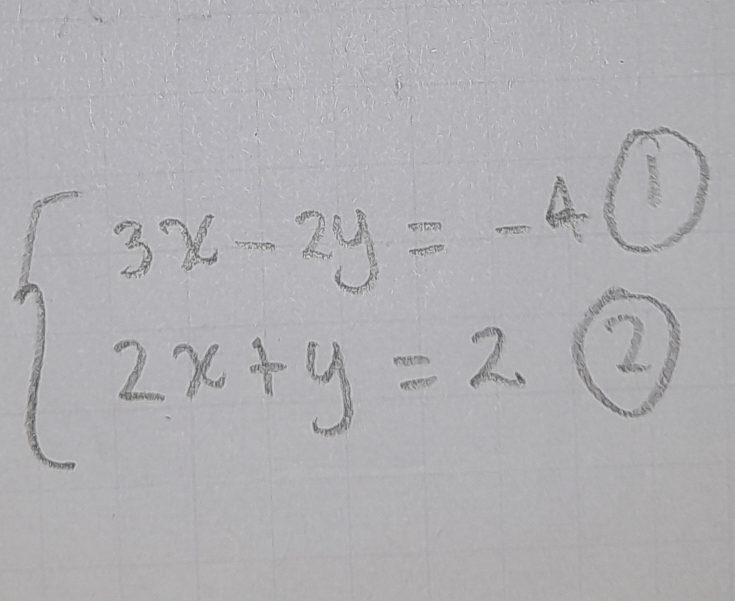 3x - 2y = -4 ①
2x + y = 2 ②